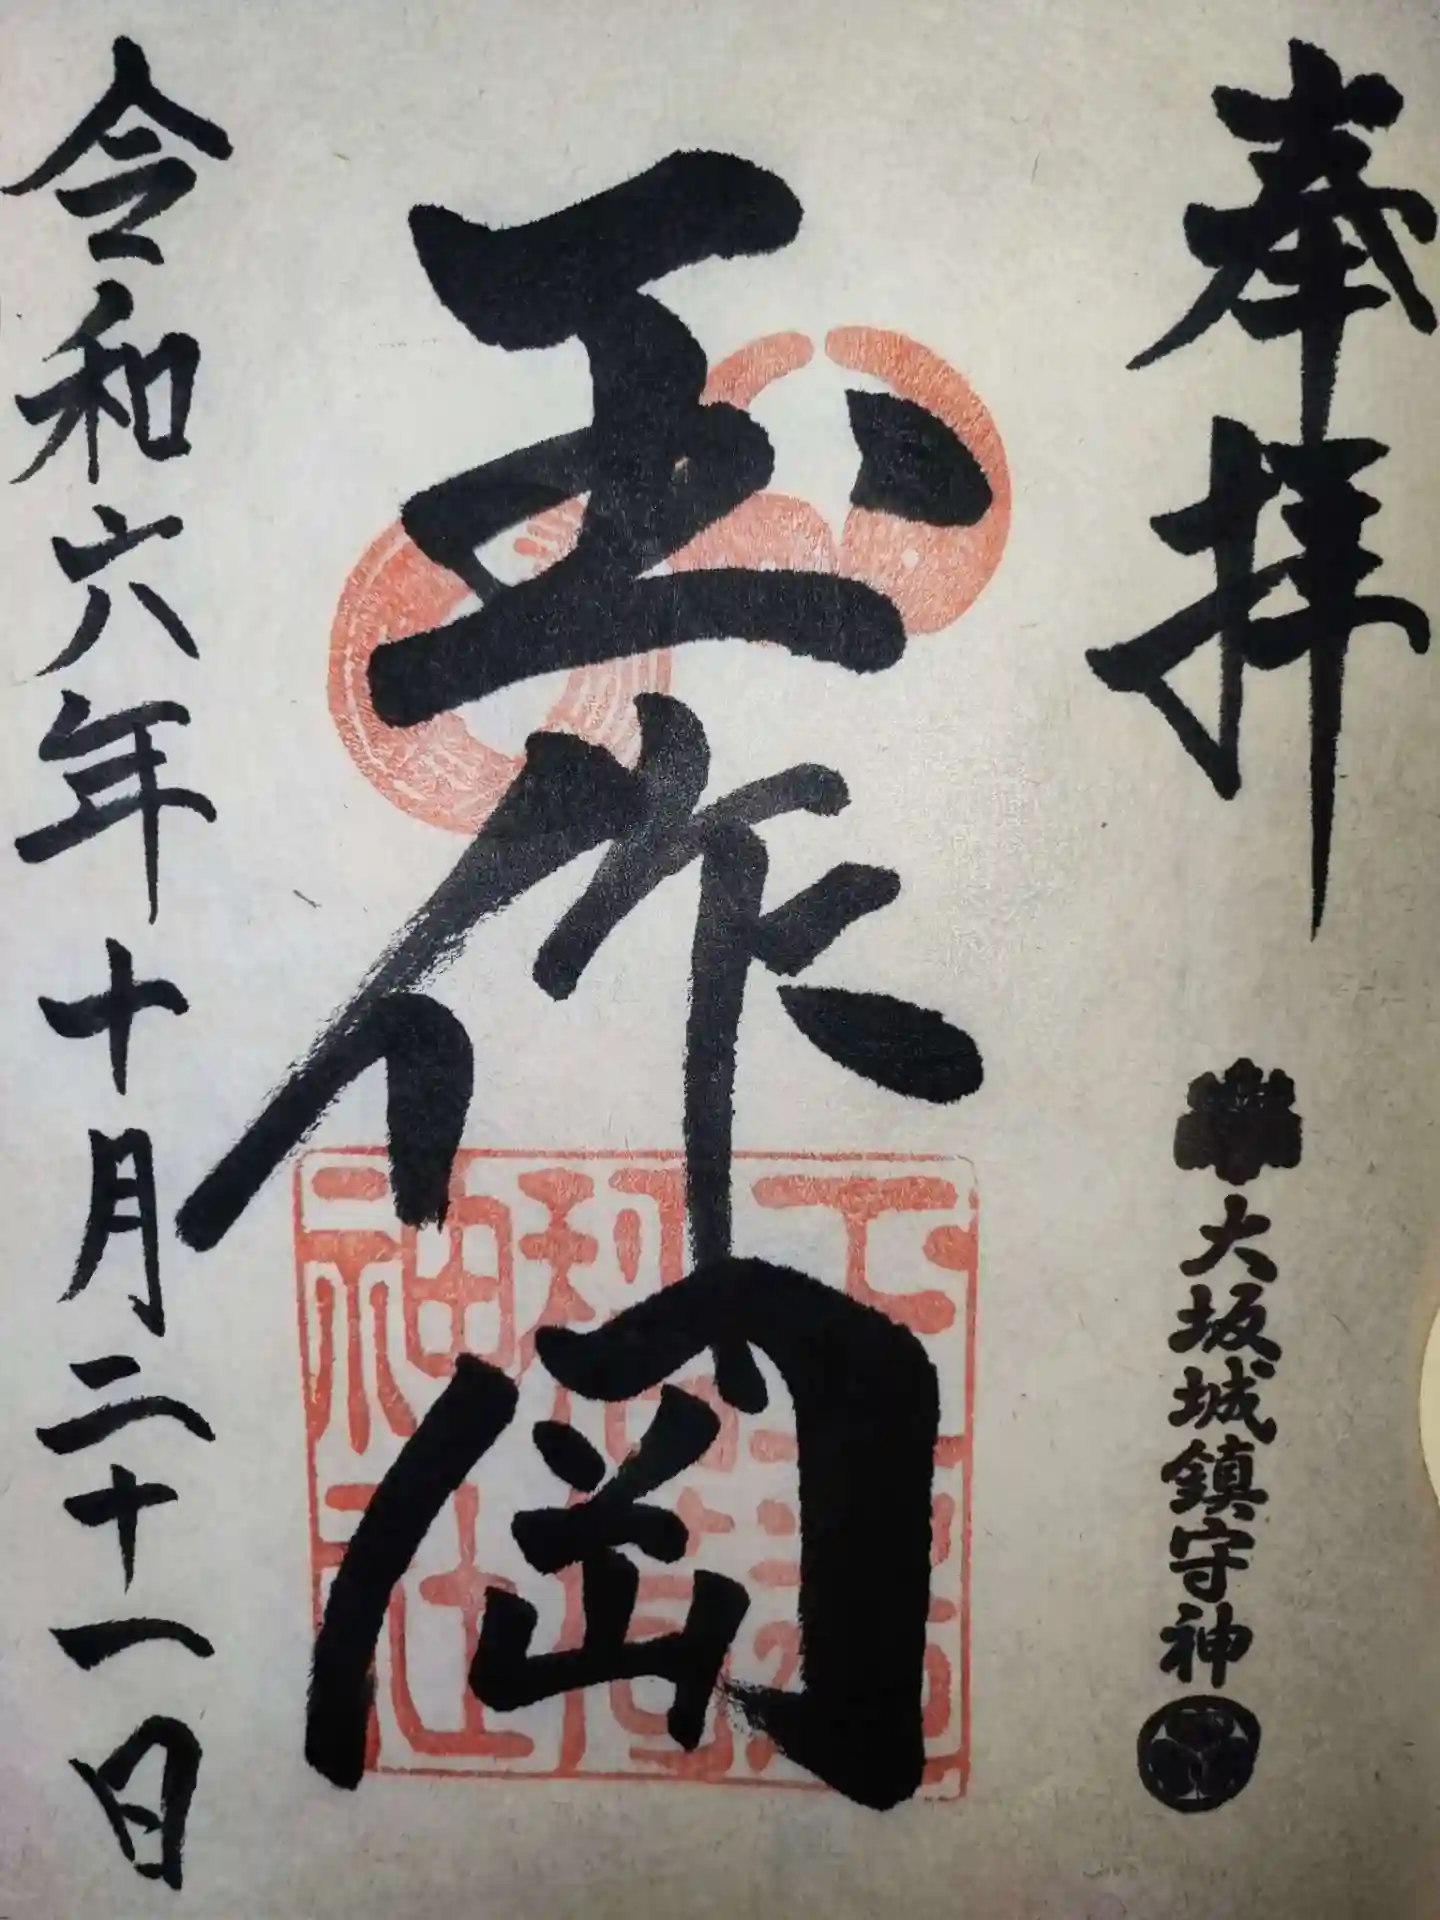 奉拝
大坂城鎮守神
玉作岡
令和六年十月二十一日